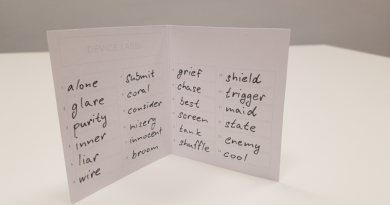 alone
glare
purity
inner
liar
wire
submit
coral
consider
misery
innocent
broom
grief
chase
best
screen
tank
shuffle
shield
trigger
maid
state
enemy
cool